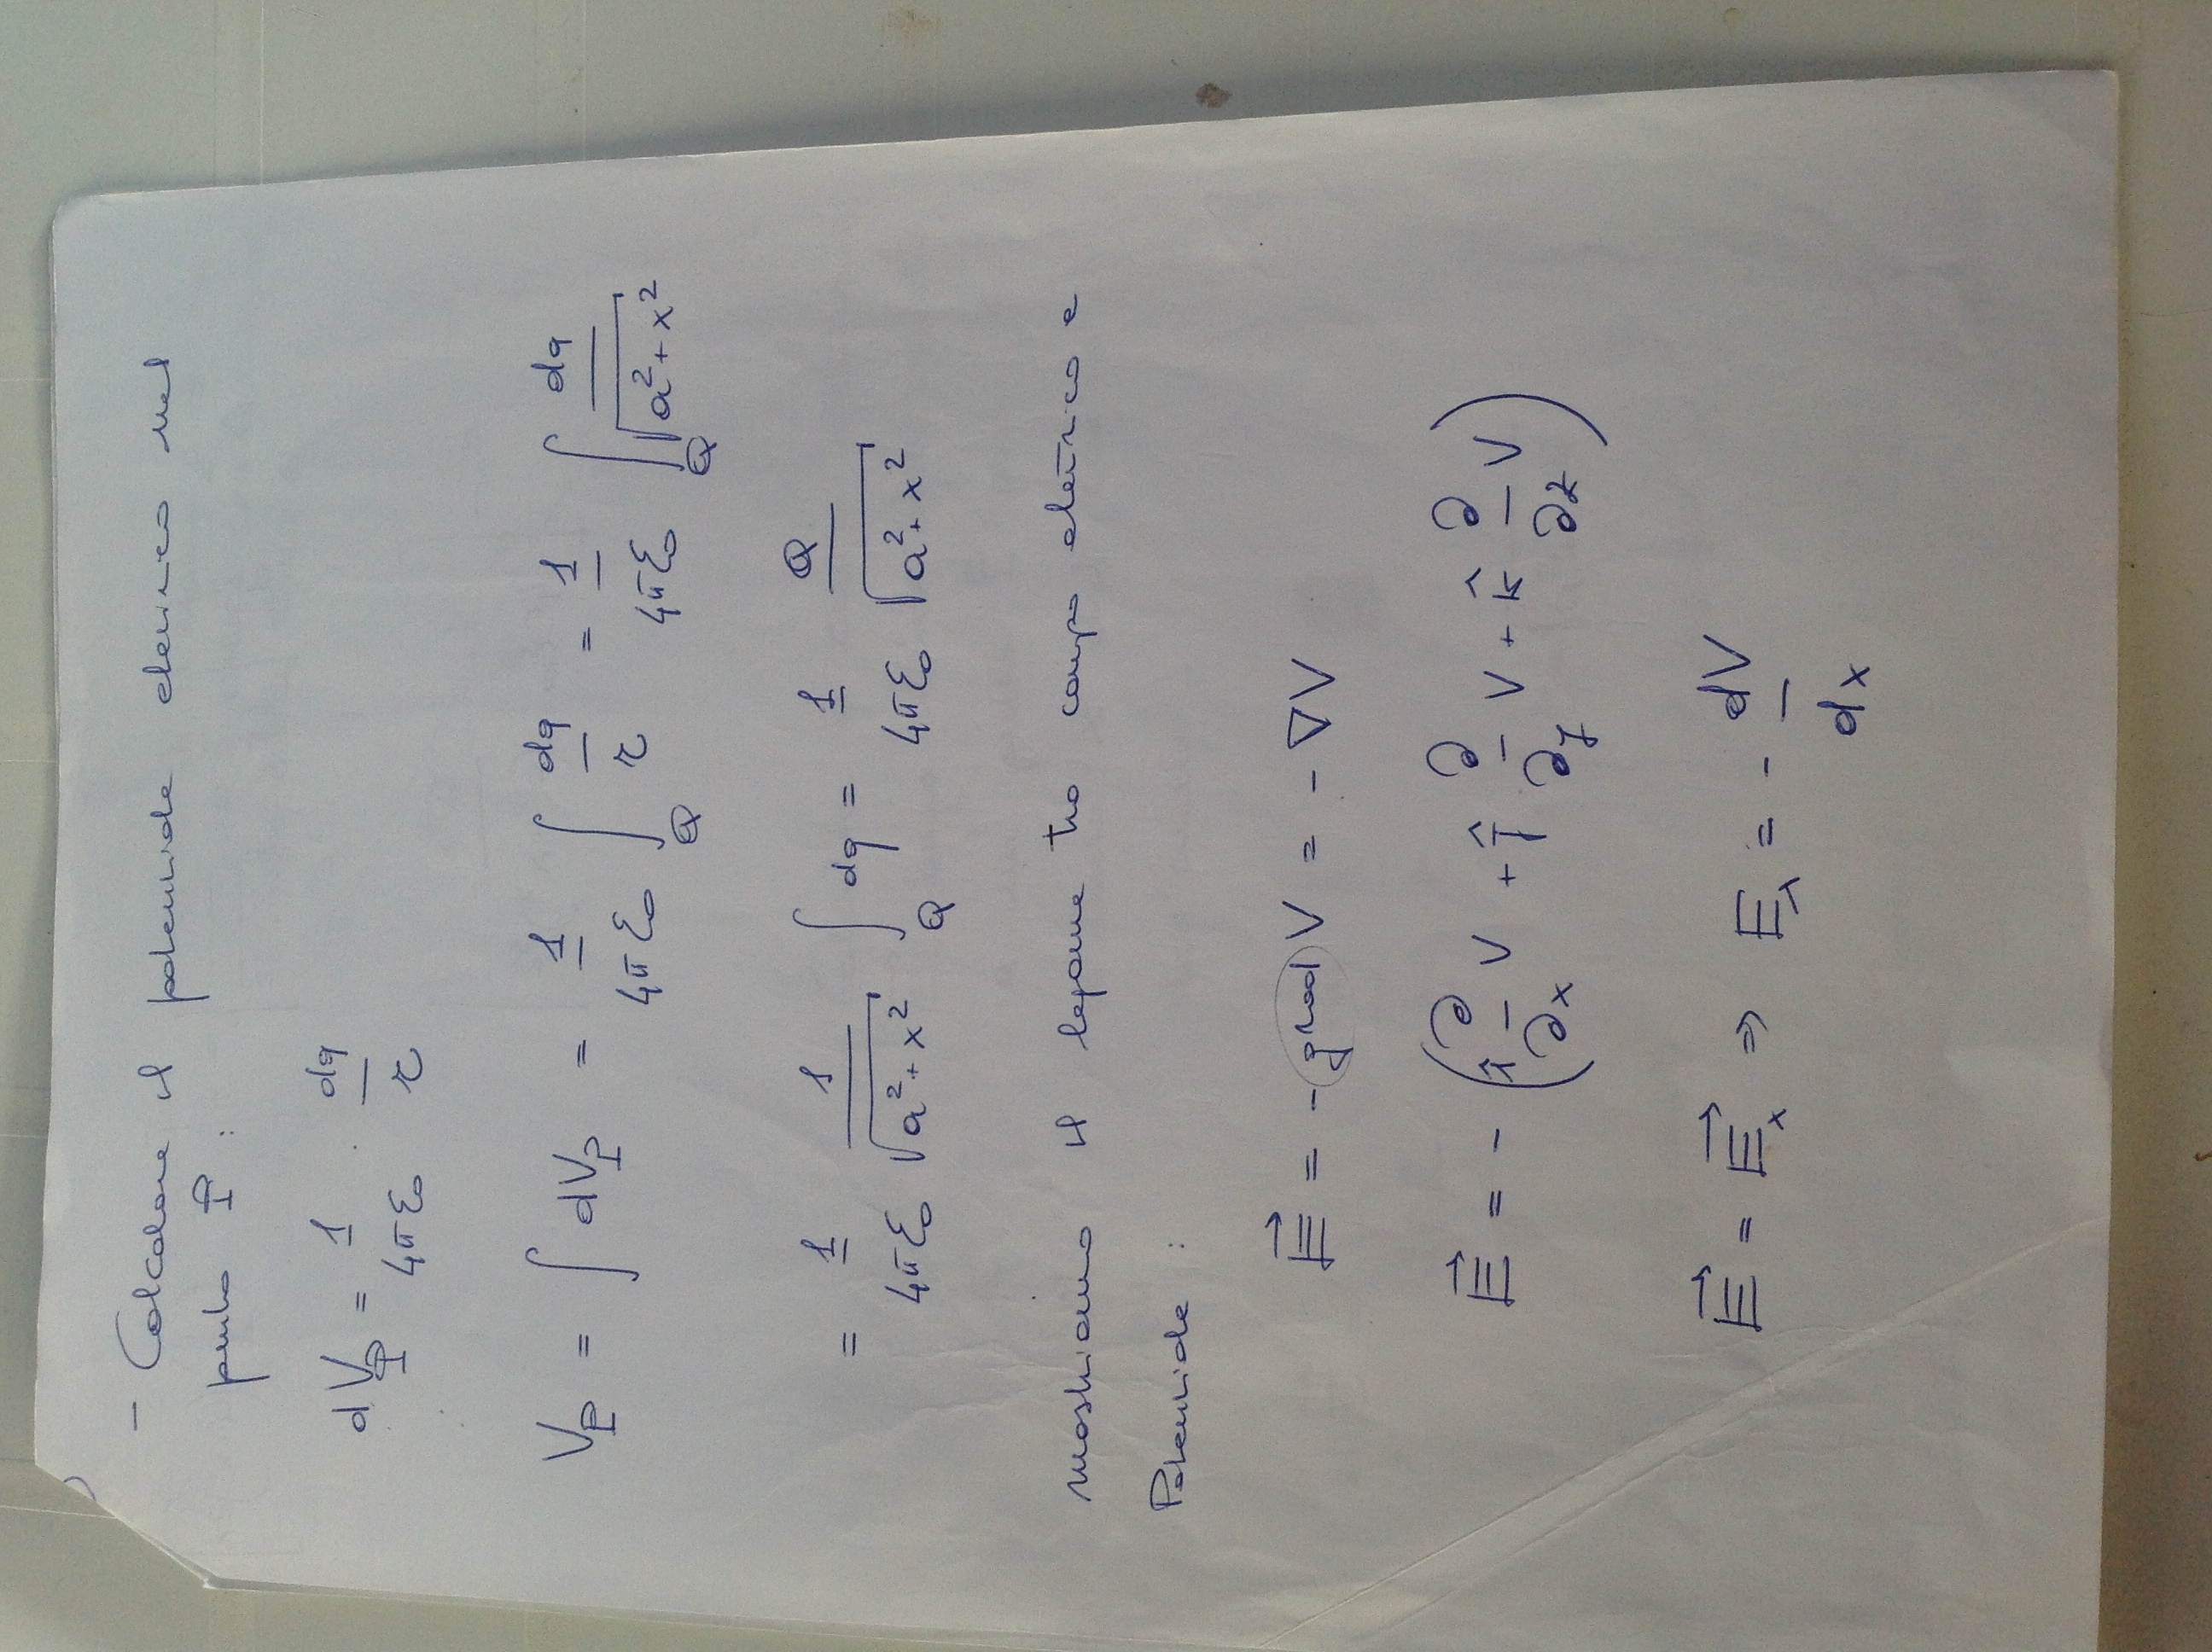 - Calcolare il potenziale elettrico nel
punto P :
dV_P = 1/(4πε₀) · dq/r
V_P = ∫ dV_P = 1/(4πε₀) ∫_Q dq/r = 1/(4πε₀) ∫_Q dq/√(a²+x²)
= 1/(4πε₀) 1/√(a²+x²) ∫_Q dq = 1/(4πε₀) Q/√(a²+x²)
mostriamo il legame tra campo elettrico e
Potenziale :
E⃗ = - grad V = - ∇V
E⃗ = - (î ∂/∂x V + ĵ ∂/∂y V + k̂ ∂/∂z V)
E⃗ = E⃗_x ⇒ E_x = - dV/dx